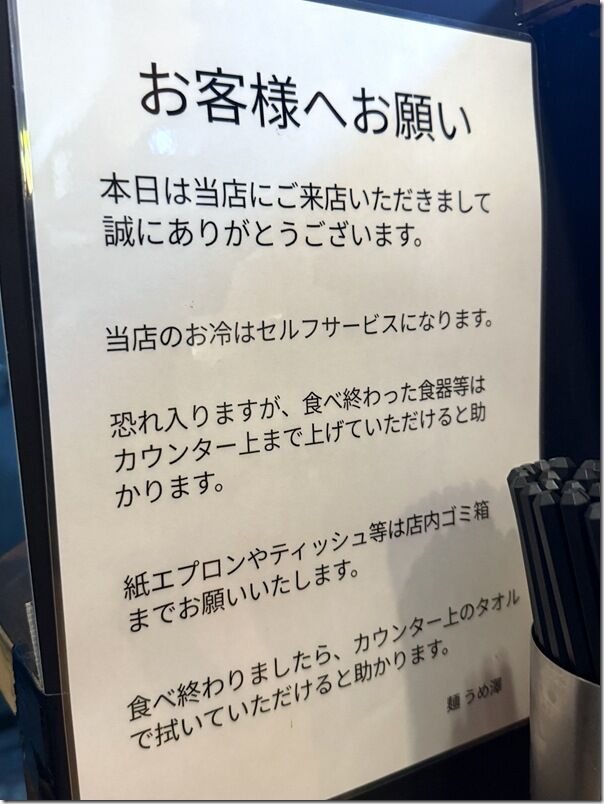 お客様へお願い
本日は当店にご来店いただきまして
誠にありがとうございます。
当店のお冷はセルフサービスになります。
恐れ入りますが、食べ終わった食器等は
カウンター上まで上げていただけると助
かります。
紙エプロンやティッシュ等は店内ゴミ箱
までお願いいたします。
食べ終わりましたら、カウンター上のタオル
で拭いていただけると助かります。
麺 うめ澤